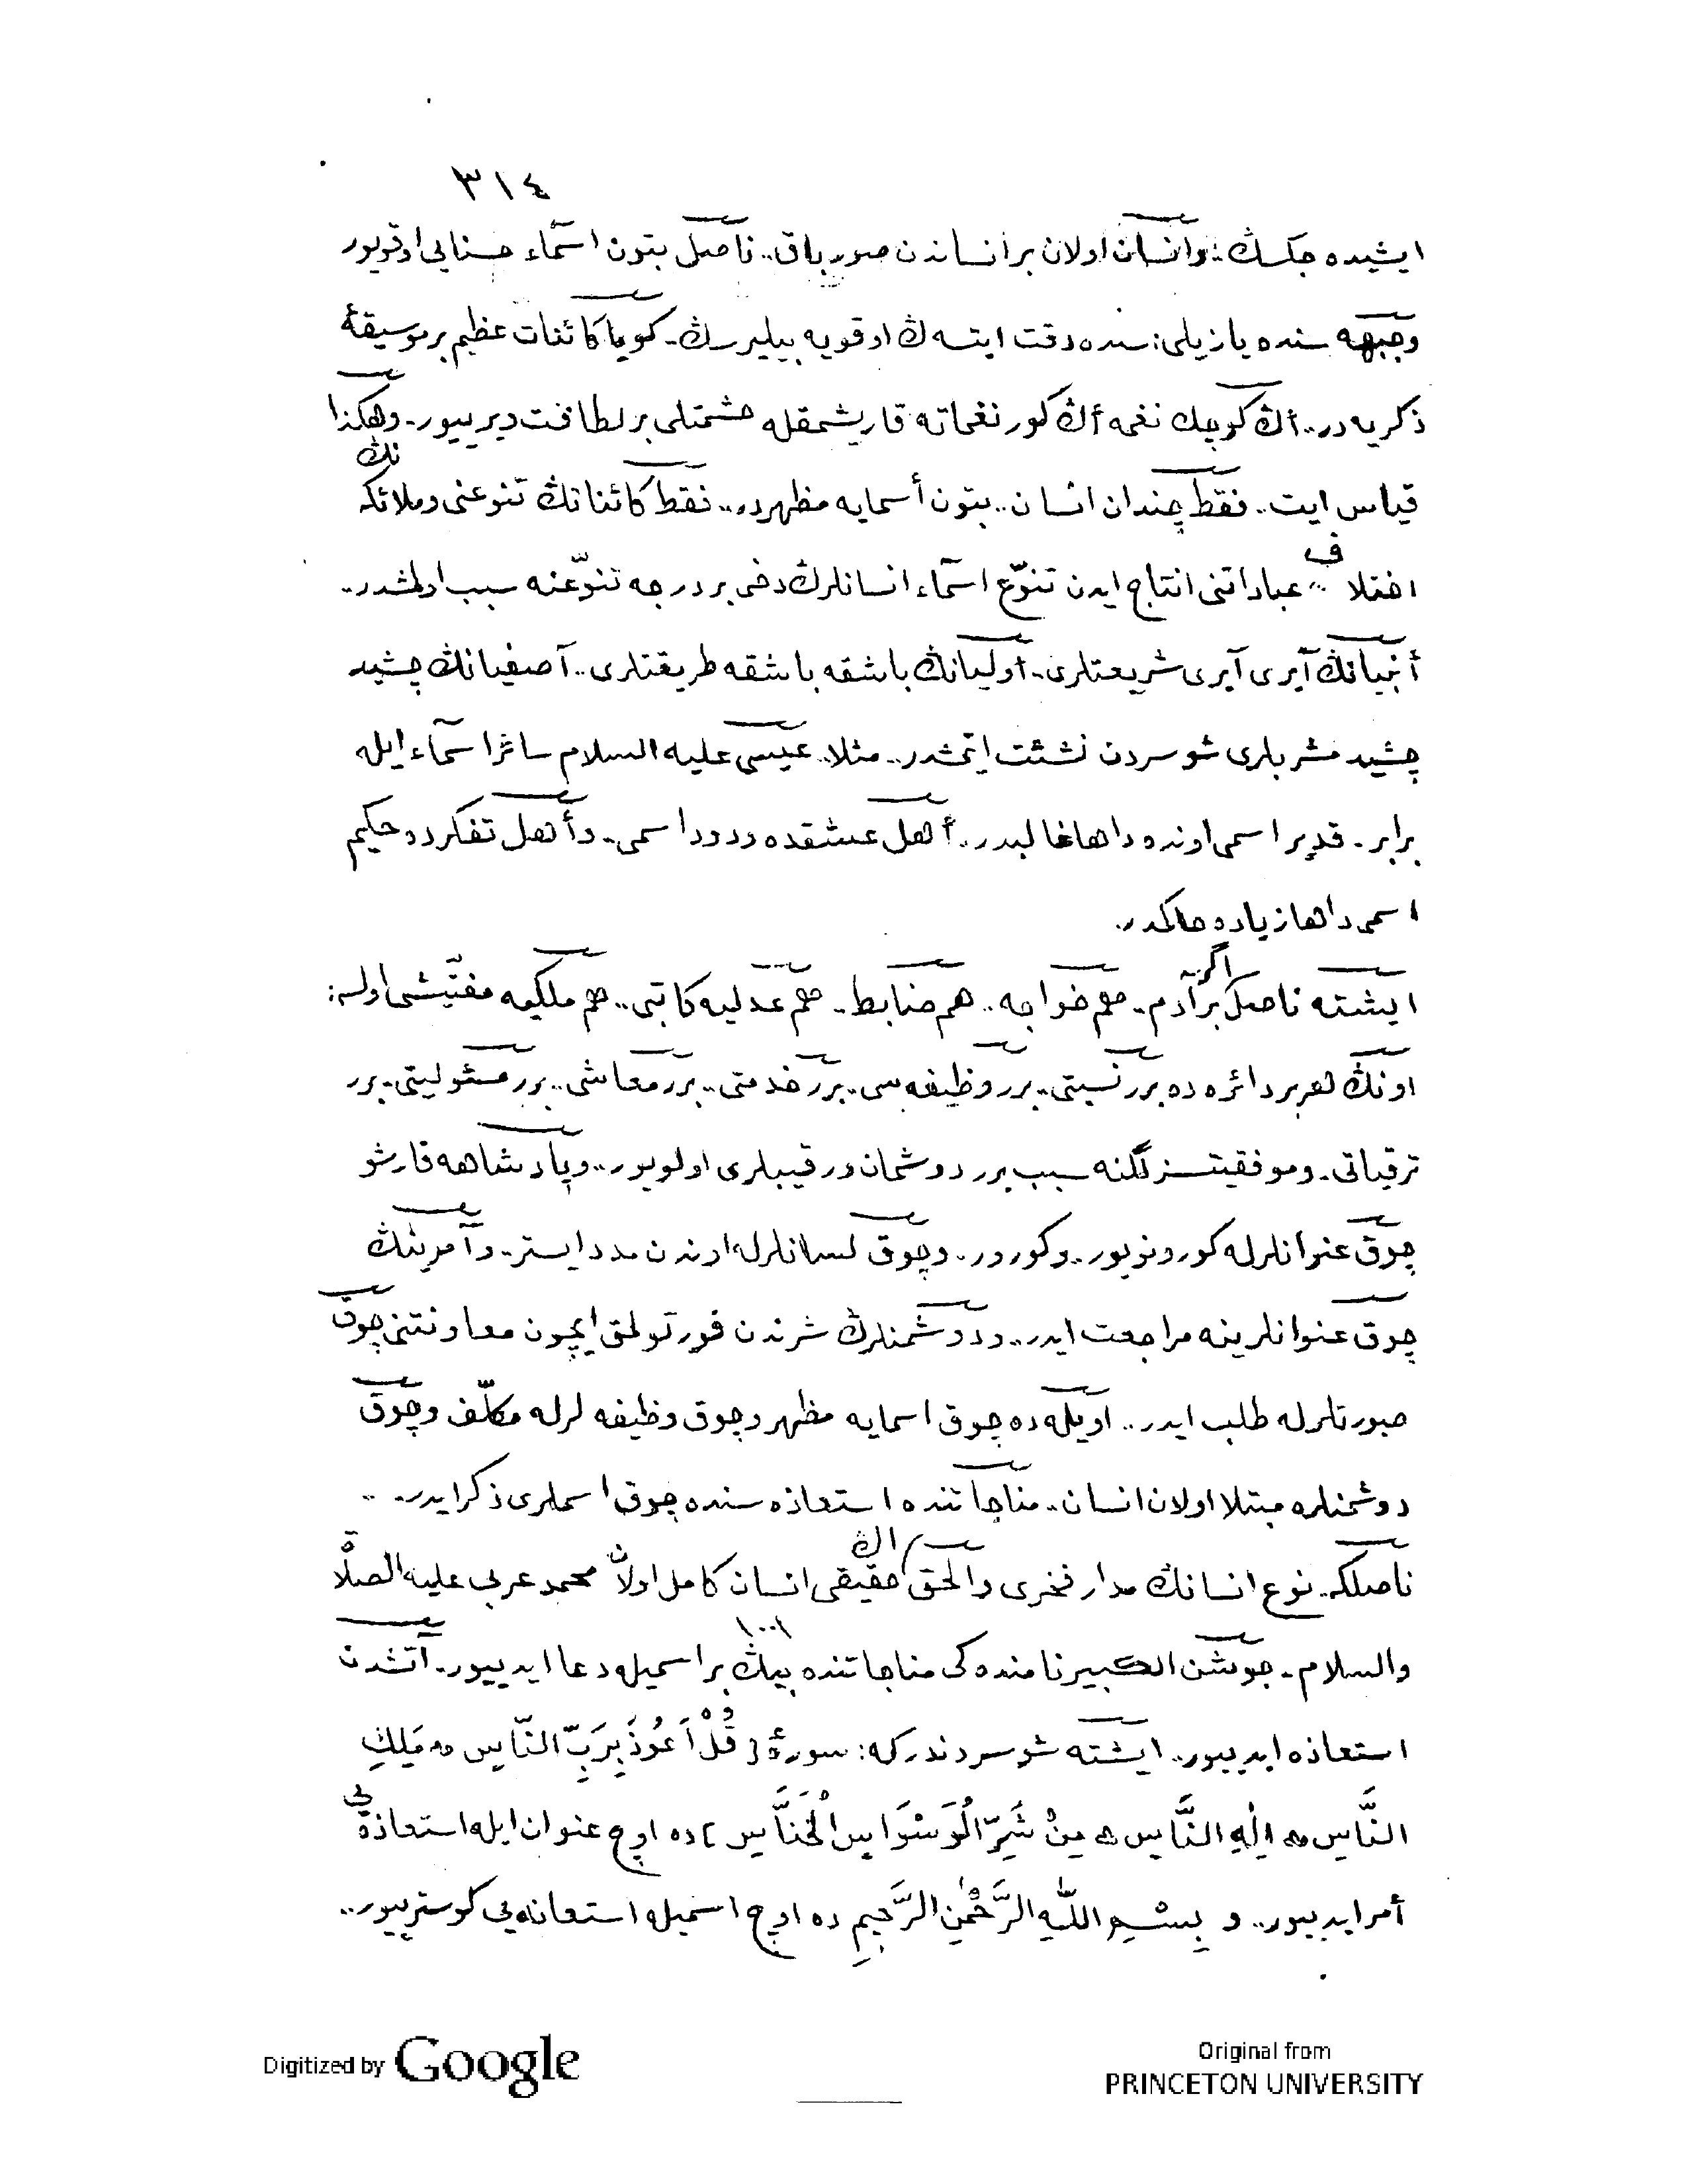 ٣١٤
ايشيده جكسڭ: وانسان اولان بر انساندن صور باق.. ناصل بتون اسمآء حسنايى اوقويور
وجبهه سنده يازيلى: سنده دقت ايتسه ڭ اوقويه بيليرسڭ. كويا كائنات عظيم بر موسيقۀ
ذكريه در.. أڭ كوچك نغمه أڭ كور نغماته قاريشمقله حشمتلى بر لطافت ديرييور. وهكذا
قياس ايت.. فقط چندان انسان.. بتون أسمايه مظهردر.. فقط كائناتڭ تنوعنى وملائكه نڭ
اختلاف عباداتنى انتاج ايدن تنوّع اسمآء انسانلرڭ دخى بر درجه تنوّعنه سبب اولمشدر..
أنبيانڭ آيرى آيرى شريعتلرى. أوليانڭ باشقه باشقه طريقتلرى.. أصفيانڭ چشيد
چشيد مشربلرى شو سردن نشئت ايتمشدر.. مثلا.. عيسى عليه السلام سائر اسمآء ايله
برابر. قدير اسمى اونده داها غالبدر.. أهل عشقده ودود اسمى. وأهل تفكرده حكيم
اسمى داها زياده حاكمدر.
ايشته ناصل اگر بر آدم. هم خواجه.. هم ضابط. هم عدليه كاتبى.. هم ملكيه مفتّشى اولسه:
اونڭ هر بر دائره ده برر نسبتى. برر وظيفه سى. برر خدمتى.. برر معاشى.. برر مسئوليتى. برر
ترقياتى. وموفقيتسزلگنه سبب برر دوشمان ورقيبلرى اولويور.. وپادشاهه قارشو
چوق عنوانلرله كورونويور.. وكورور. وچوق لسانلرله اوندن مدد ايستر. وآمرينڭ
چوق عنوانلرينه مراجعت ايدر.. ودوشمنلرڭ شرندن قورتولمق ايچون معاونتنى چوق
صورتلرله طلب ايدر.. اويله ده چوق اسمايه مظهر وچوق وظيفه لرله مكلّف وچوق
دوشمنلره مبتلا اولان انسان. مناجاتنده استعاذه سنده چوق اسملرى ذكر ايدر. ..
ناصلكه. نوع انسانڭ مدار فخرى والحق اڭ حقيقى انسان كامل اولان محمد عربى عليه الصلاة
والسلام. جوشن الكبير نامنده كى مناجاتنده بيڭ بر ١٠٠١ اسميله دعا ايدييور. آتشدن
استعاذه ايدييور.. ايشته شو سردندركه: سورۀ { قُلْ اَعُوذُ بِرَبِّ النَّاسِ ۝ مَلِكِ
النَّاسِ ۝ اِلٰهِ النَّاسِ ۝ مِنْ شَرِّ الْوَسْوَاسِ الْخَنَّاسِ } ده اوچ عنوان ايله استعاذه يى
أمر ايدييور.. و بِسْمِ اللّٰهِ الرَّحْمٰنِ الرَّحِيمِ ده اوچ اسميله استعانه يى كوسترييور..
Digitized by Google
Original from
PRINCETON UNIVERSITY